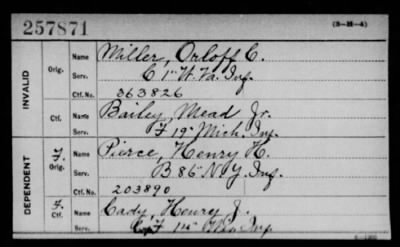 257871 (3-H-4)
INVALID
Orig. Name Miller, Orloff C.
Serv. C 1" W. Va. Inf.
Ctf. No. 363826
Ctf. Name Bailey, Mead Jr.
Serv. F 19" Mich. Inf.
DEPENDENT
F. Orig. Name Pierce, Henry H.
Serv. B 86" N.Y. Inf.
Ctf. No. 203890
F. Ctf. Name Cady, Henry J.
Serv. F Inf.